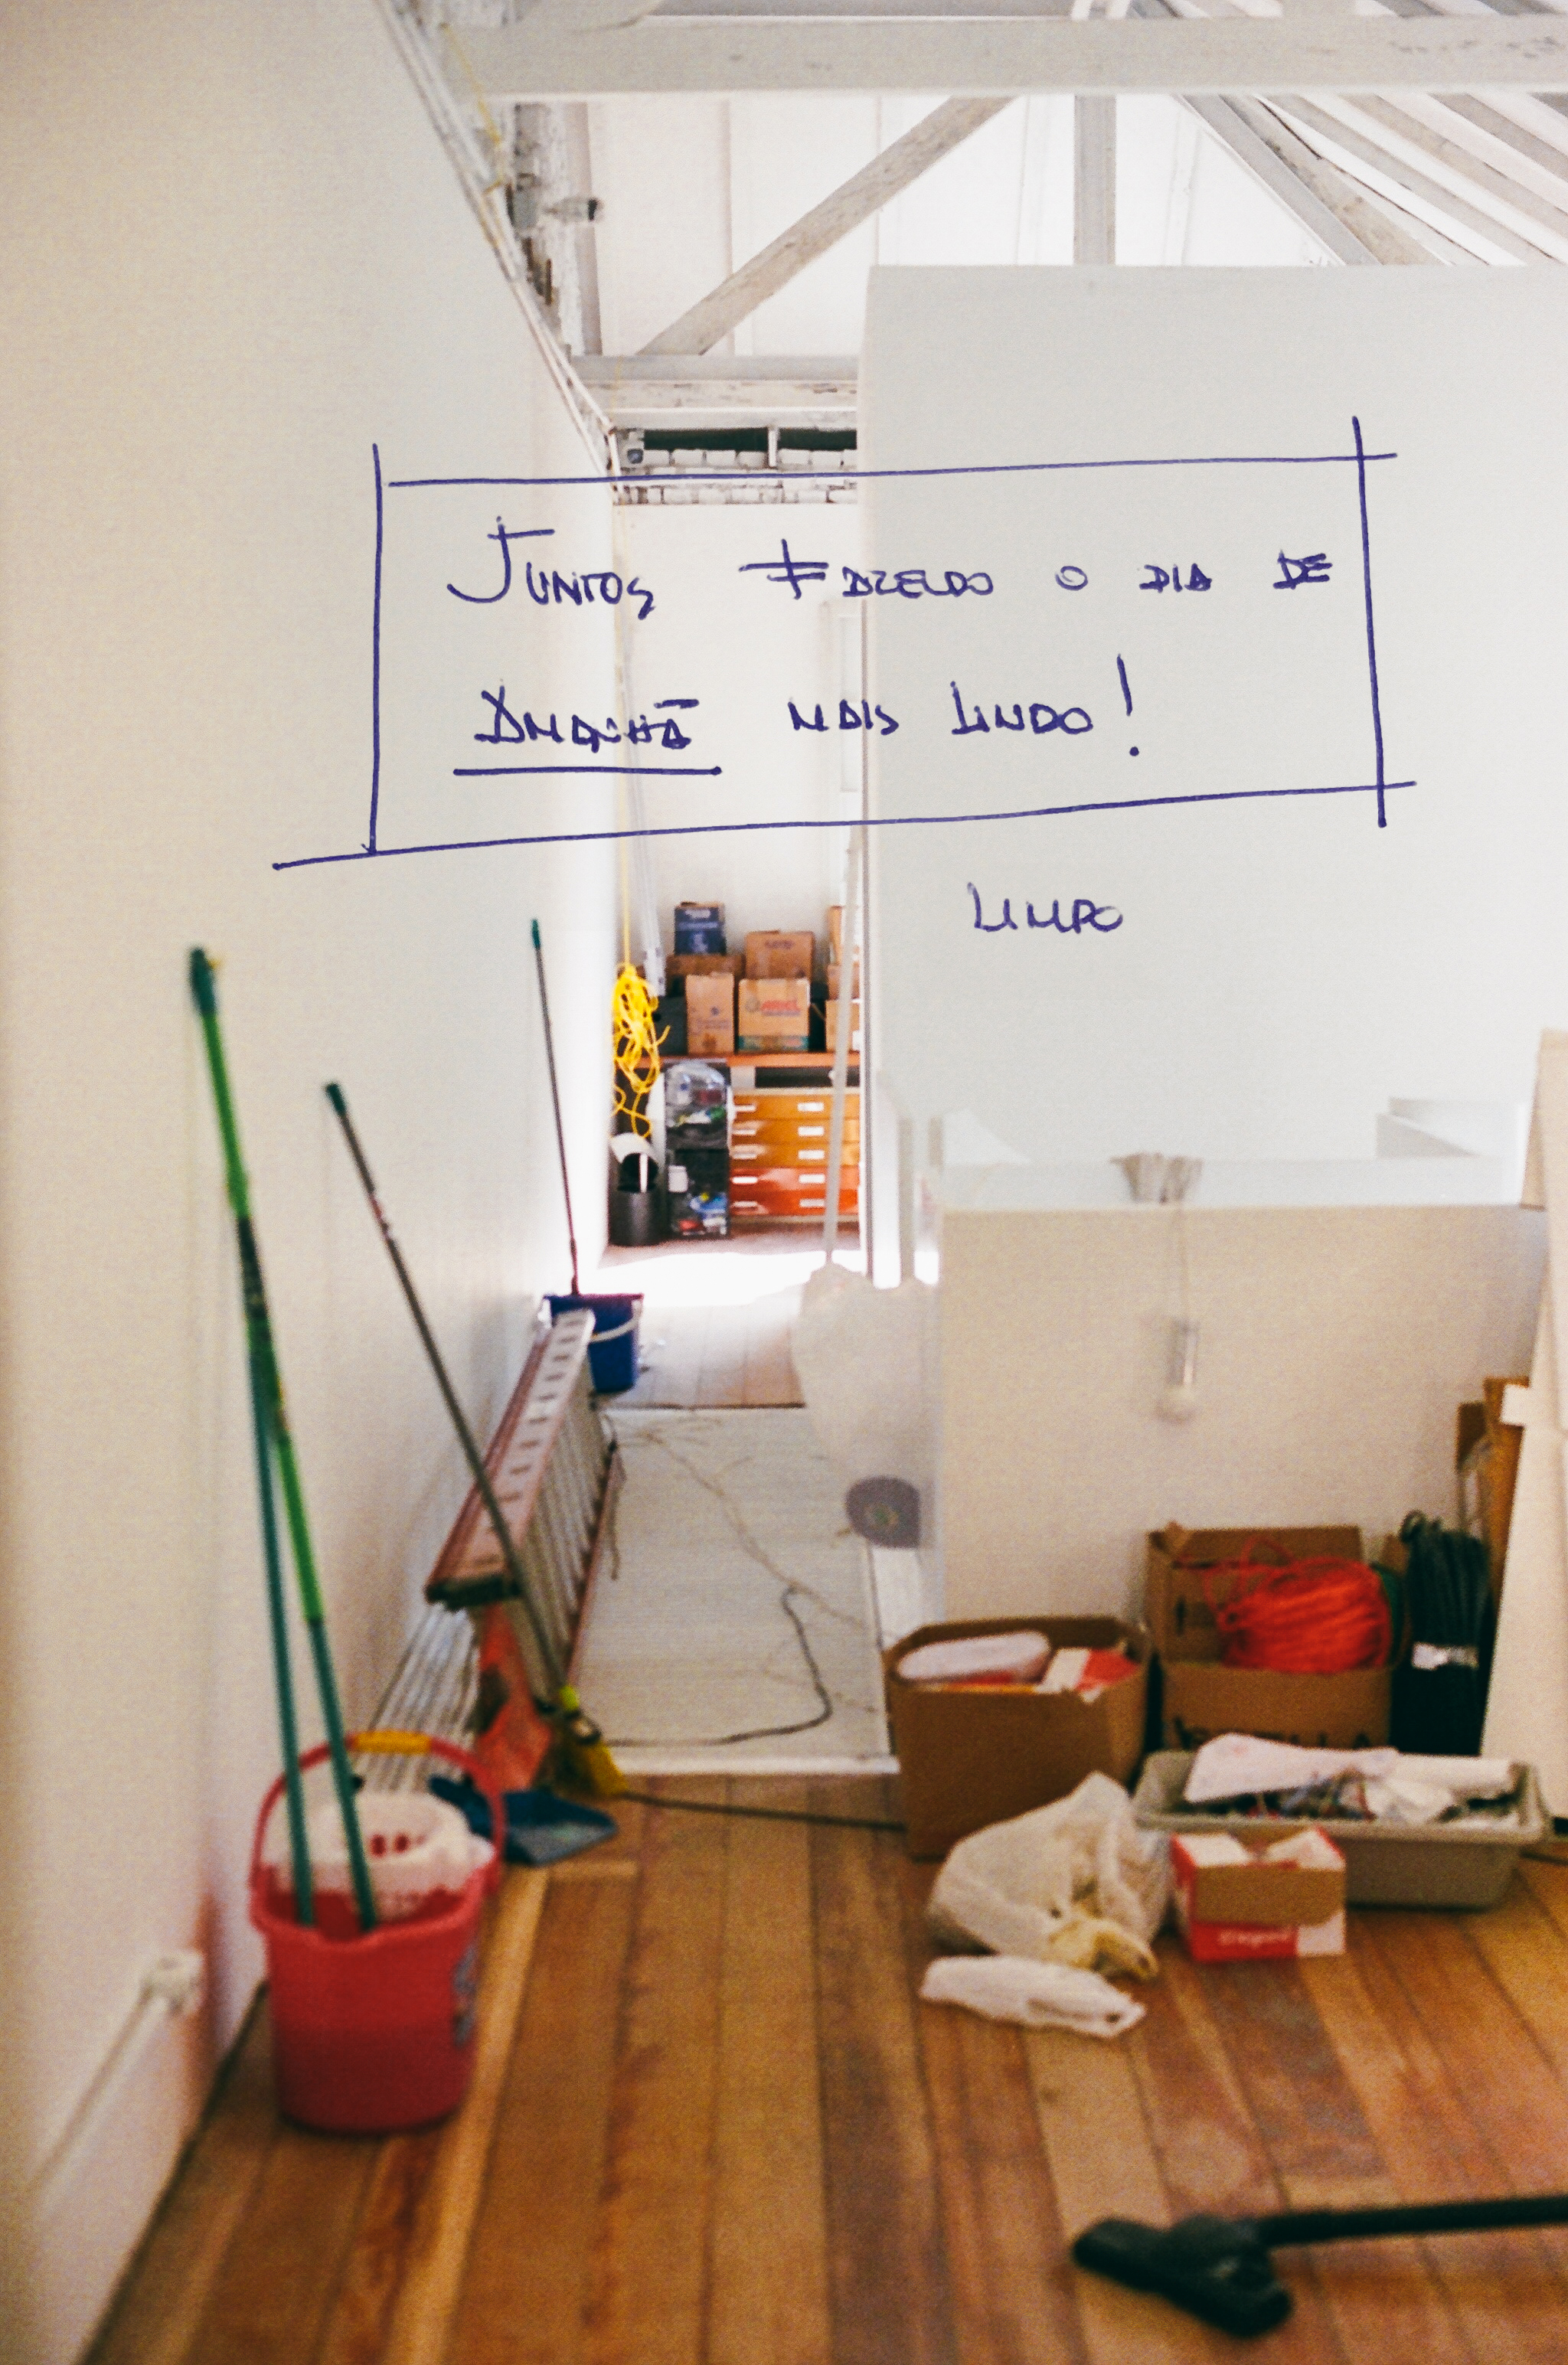 JUNTOS FAZENDO O DIA DE
AMANHÃ MAIS LINDO!
LIMPO